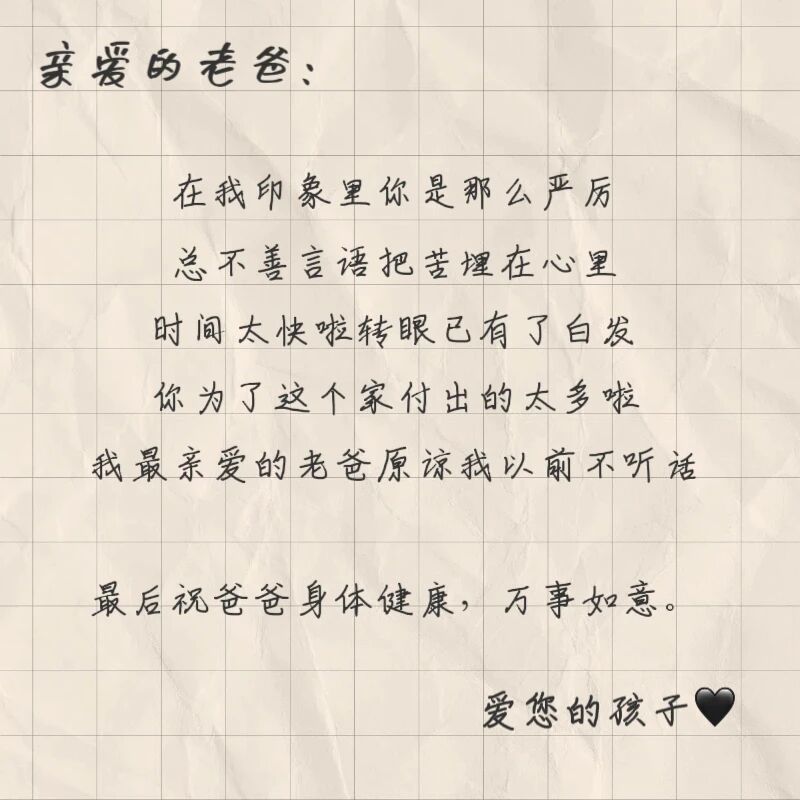 亲爱的老爸:
在我印象里你是那么严厉
总不善言语把苦埋在心里
时间太快啦转眼已有了白发
你为了这个家付出的太多啦
我最亲爱的老爸原谅我以前不听话
最后祝爸爸身体健康，万事如意。
爱您的孩子🖤